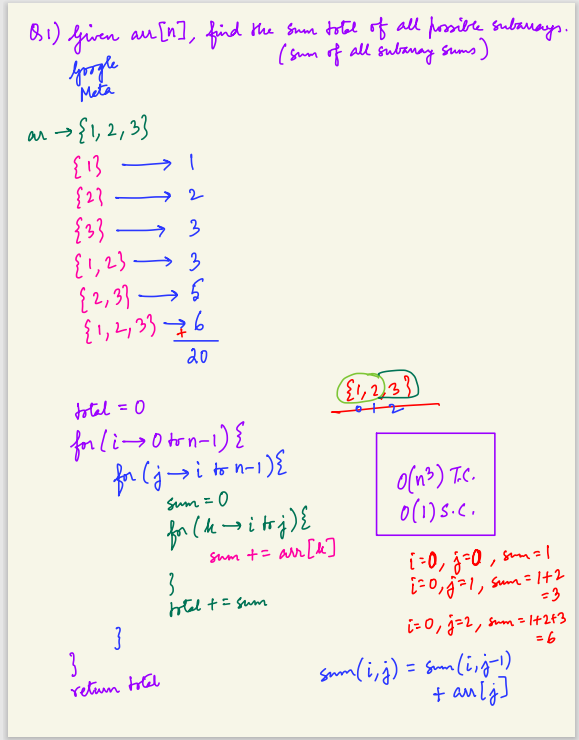 Q.1) Given arr[n], find the sum total of all possible subarrays.
(sum of all subarray sums)
Google
Meta
ar → {1, 2, 3}
{1} → 1
{2} → 2
{3} → 3
{1, 2} → 3
{2, 3} → 5
{1, 2, 3} → 6
+
20
{1, 2, 3}
0 1 2
total = 0
for (i → 0 to n-1) {
for (j → i to n-1) {
sum = 0
for (k → i to j) {
sum += arr[k]
}
total += sum
}
}
return total
O(n³) T.C.
O(1) S.C.
i=0, j=0, sum = 1
i=0, j=1, sum = 1+2
=3
i=0, j=2, sum = 1+2+3
=6
sum(i, j) = sum(i, j-1)
+ arr[j]